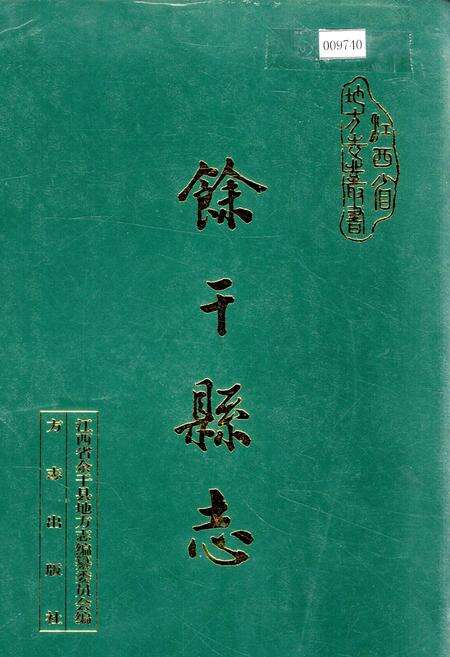 009740
江西省
地方志叢書
餘干縣志
江西省余干县地方志编纂委员会编
方志出版社